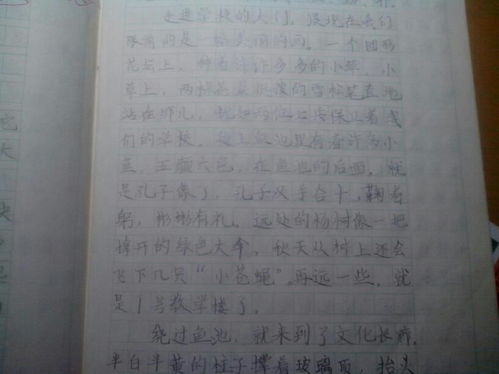 走进学校的大门，展现在我们
眼前的是一幅美丽的画。一个圆形
花坛上，种着许许多多的小草。小
草上，两棵 的雪松笔直地
站在那儿， 保卫着我
们的学校。 鱼池里有着许多小
鱼，五颜六色，在鱼池的后面，就
是孔子像了，孔子双手合十，鞠着
躬，彬彬有礼。远处的杨树像一把
撑开的绿色大伞，秋天从树上还会
飞下几只“小苍蝇”。再远一些，就
是1号教学楼了。
绕过鱼池，就来到了文化长廊，
半白半黄的柱子撑着玻璃顶，抬头
它
大